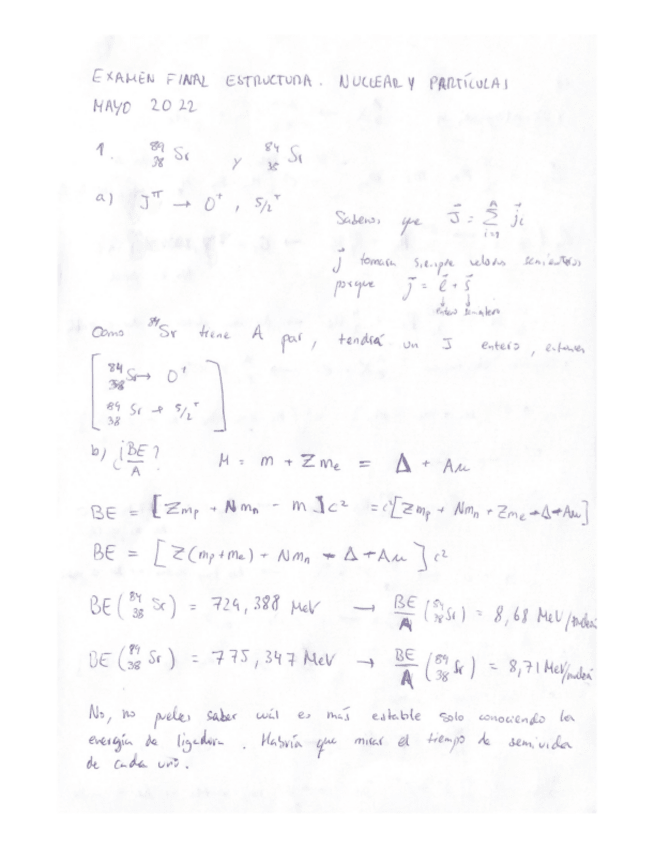 EXAMEN FINAL ESTRUCTURA. NUCLEAR Y PARTÍCULAS
MAYO 2022
1. ⁸⁹₃₈Sr y ⁸⁴₃₈Sr
a) J^π → 0⁺, 5/2⁺
Sabemos que J⃗ = Σ_{i=1}^{A} j⃗_i
j⃗ tomara siempre valores semienteros
porque j⃗ = l⃗ + s⃗
entero semientero
Como ⁸⁴Sr tiene A par, tendrá un J entero, entonces
[ ⁸⁴₃₈Sr → 0⁺
⁸⁹₃₈Sr → 5/2⁺ ]
b) ¿BE/A? M = m + Zme = Δ + Au
BE = [Zmp + Nmn - m]c² = c²[Zmp + Nmn + Zme - Δ - Au]
BE = [Z(mp+me) + Nmn - Δ - Au]c²
BE(⁸⁴₃₈Sr) = 724,388 MeV → BE/A (⁸⁴₃₈Sr) = 8,68 MeV/nucleón
BE(⁸⁹₃₈Sr) = 775,347 MeV → BE/A (⁸⁹₃₈Sr) = 8,71 MeV/nucleón
No, no puedes saber cuál es más estable solo conociendo la
energía de ligadura. Habría que mirar el tiempo de semivida
de cada uno.